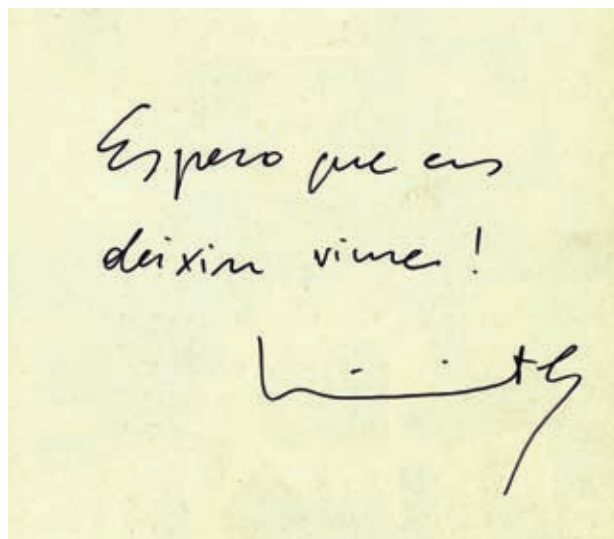 Espero que ens
deixin viure!